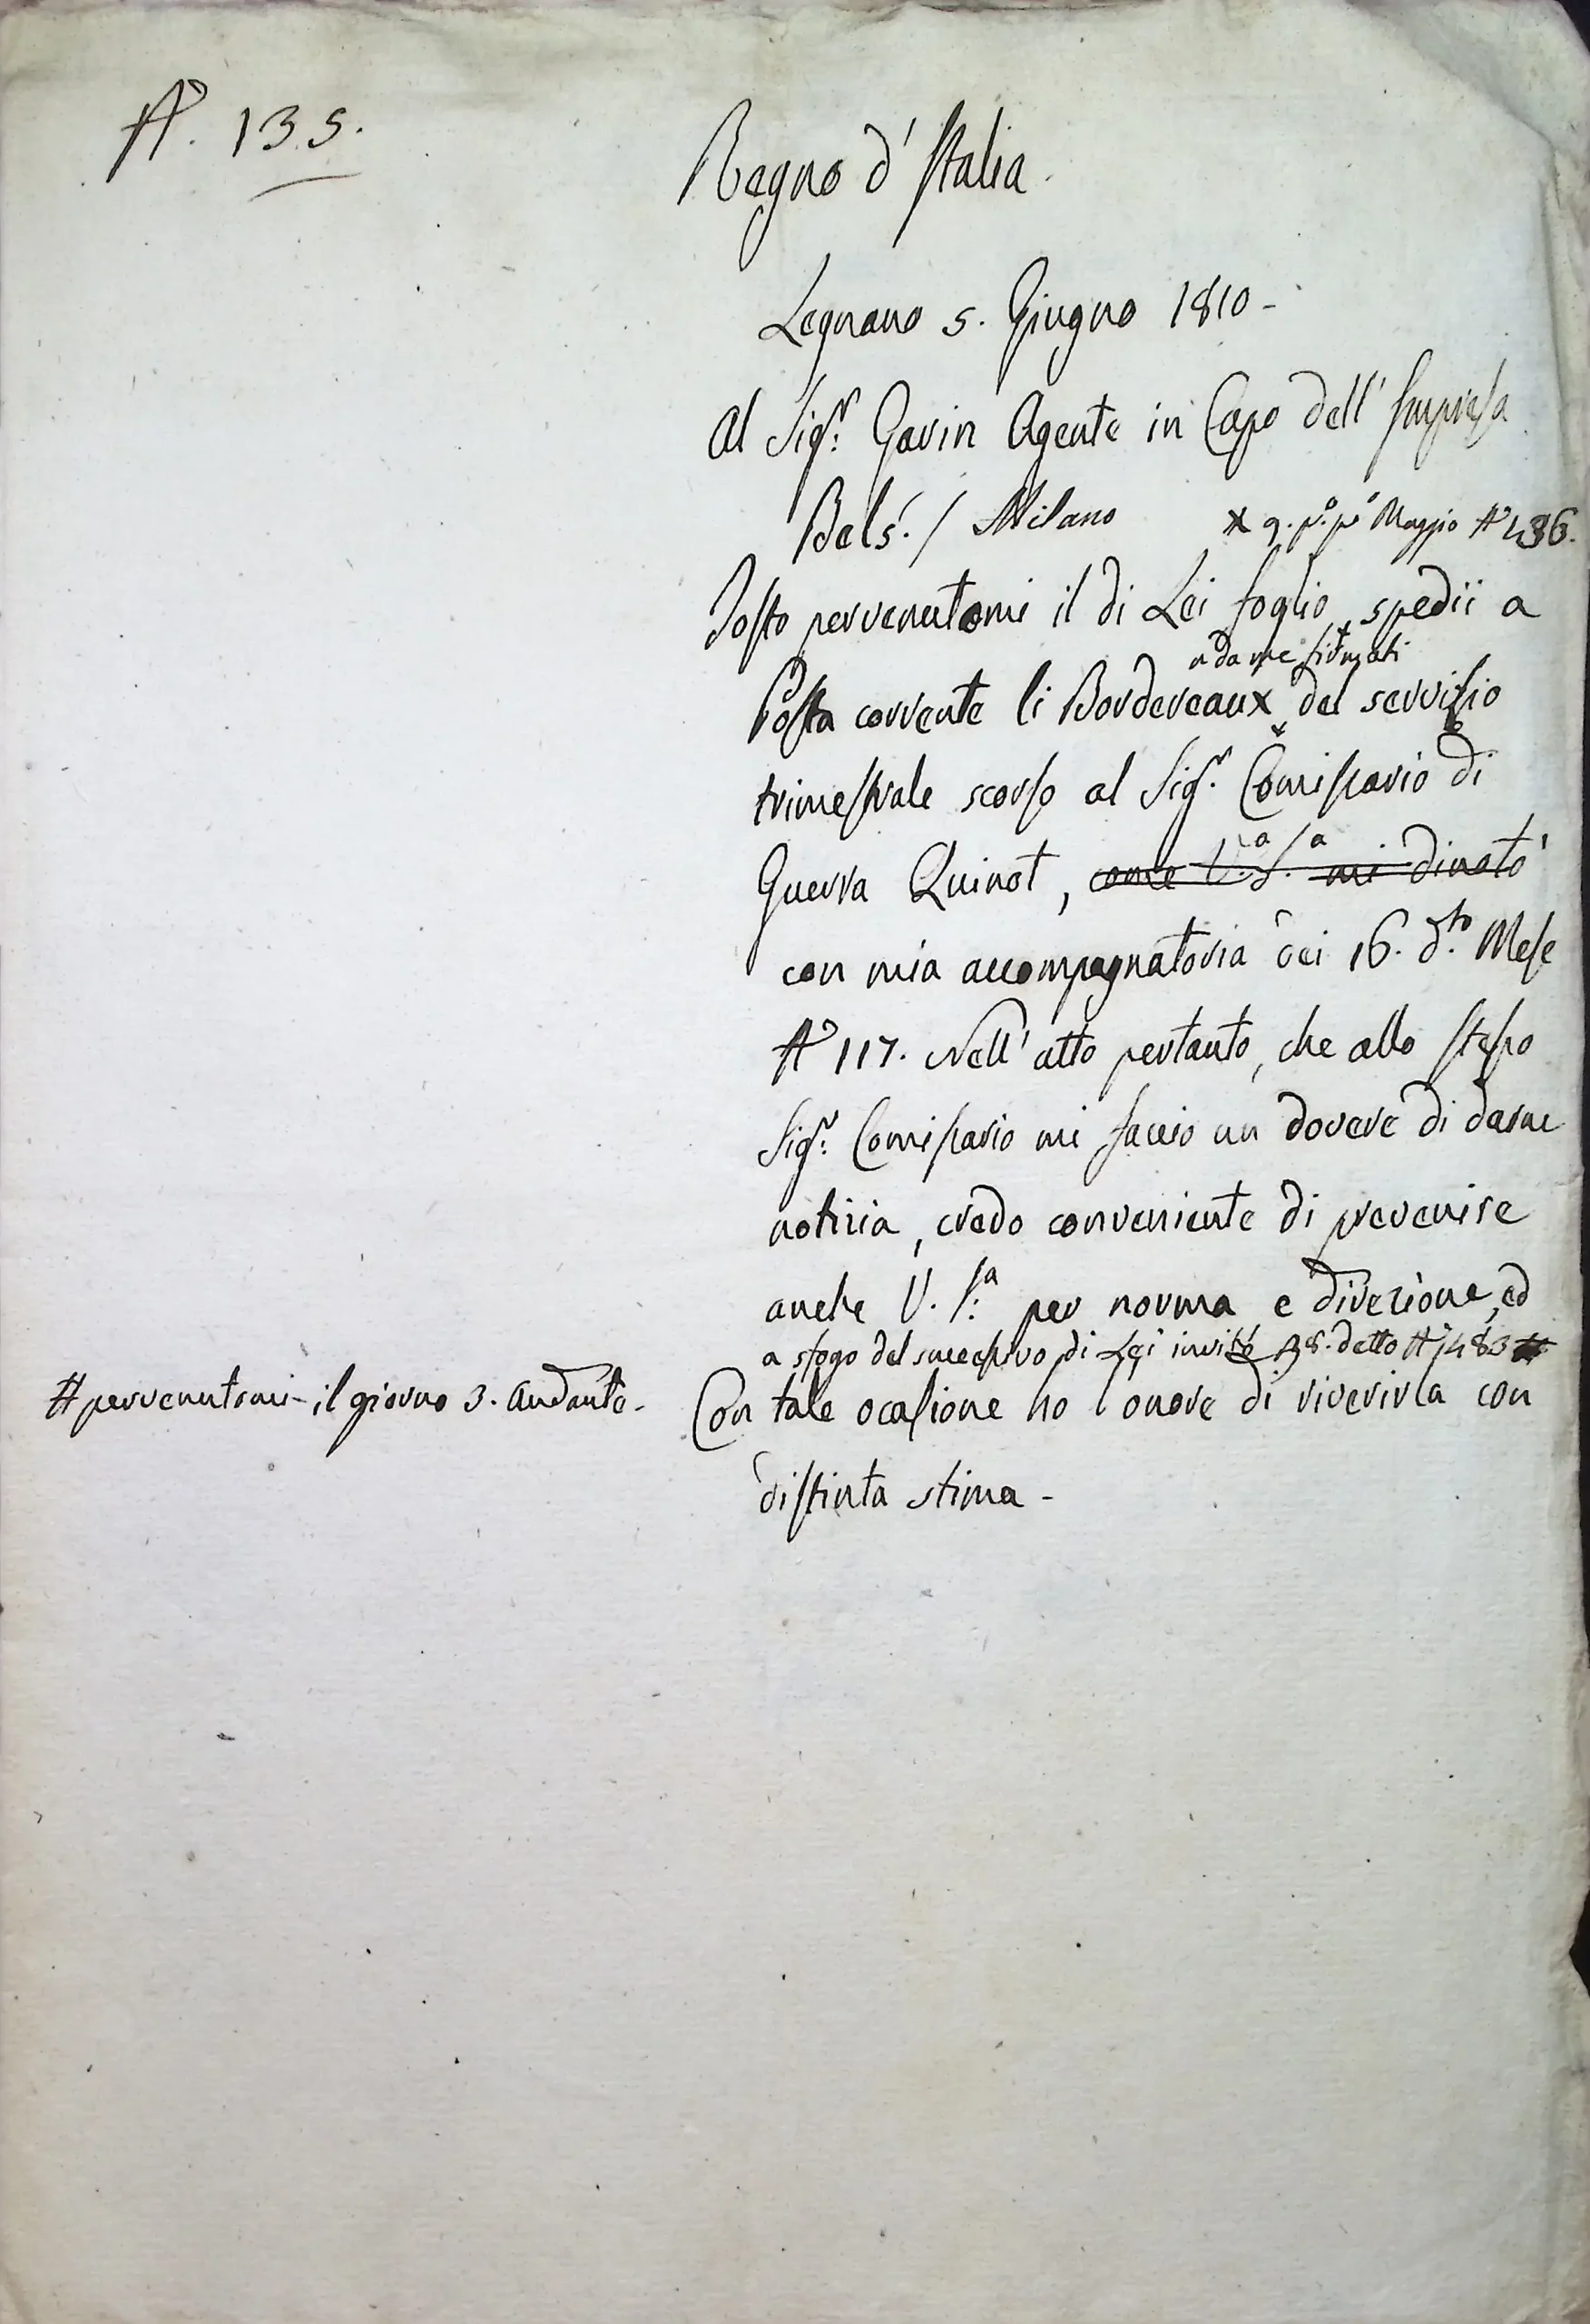 N. 135.
Regno d'Italia.
Legnano 5. Giugno 1810-
Al Sig.r Gavin Agente in Capo dell'Impresa
Bels. / Milano
x 9. p.o p.o Maggio N 436.
Tosto pervenutomi il di Lei foglio x spedii a
da me firmati
Posta corrente li Bordereaux del servisio
trimestrale scorso al Sig.r Comissario di
Guerra Quinot, come V.a S.a mi dinotò
con mia accompagnatoria dei 16. d.to Mese
N 117. Nell'atto pertanto, che allo stesso
Sig.r Comissario mi faccio un dovere di darne
notizia, credo conveniente di prevenire
anche V. S.a per norma e direzione, ed
a sfogo del successivo di Lei invito 28. detto N 483 #
# pervenutomi il giorno 3. andante.
Con tale ocasione ho l'onore di riverirla con
distinta stima-